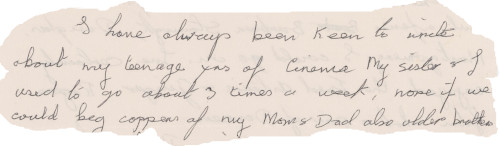 I have always been keen to write
about my teenage yrs of Cinema My sister & I
used to go about 3 times a week, more if we
could beg coppers of my Mom & Dad also older brothers